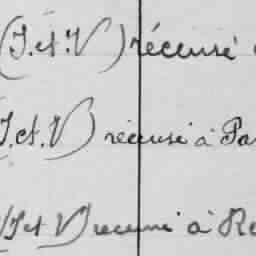 (I. et. V) récensé
I. et. V) récensé à Pa
(I et V) recensé à Re